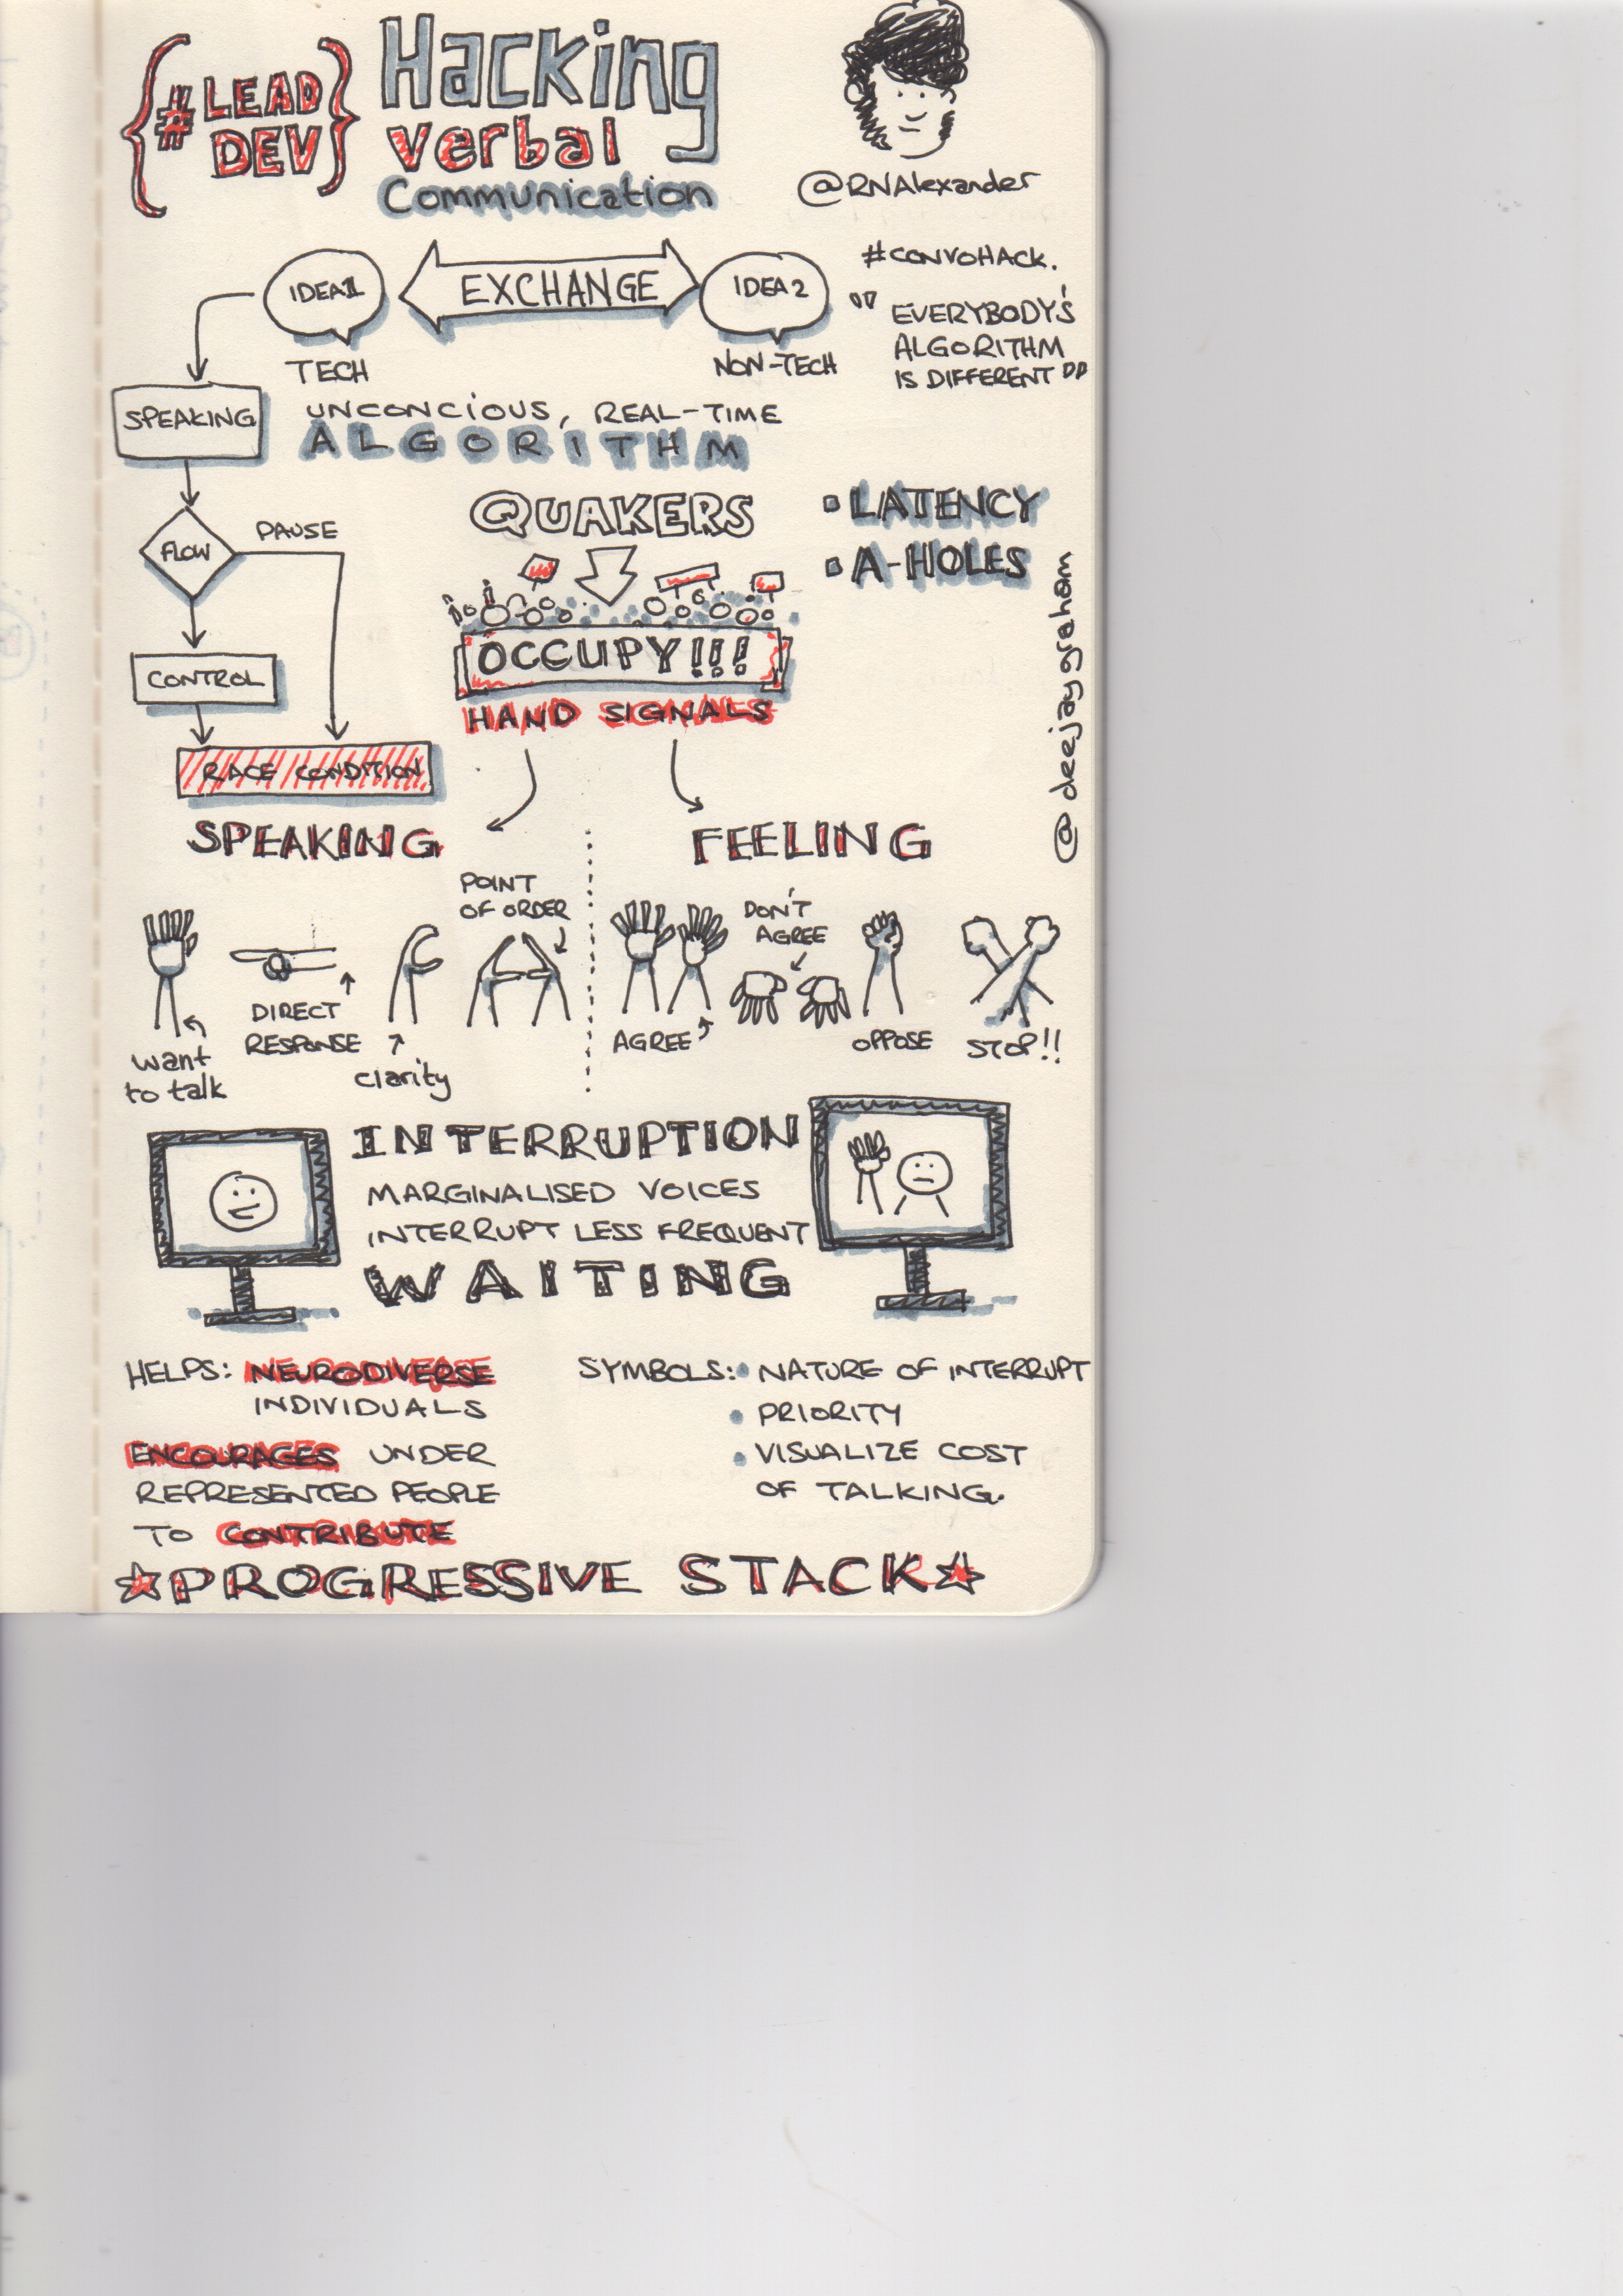 {#LEAD
DEV}
Hacking
verbal
Communication
@RNAlexander
IDEA 1
EXCHANGE
IDEA 2
TECH
NON-TECH
#CONVOHACK.
"EVERYBODY'S
ALGORITHM
IS DIFFERENT"
SPEAKING
UNCONCIOUS, REAL-TIME
ALGORITHM
FLOW
PAUSE
CONTROL
RACE CONDITION
QUAKERS
OCCUPY!!!
HAND SIGNALS
▪ LATENCY
▪ A-HOLES
@deejaygraham
SPEAKING
want
to talk
DIRECT
RESPONSE
clarity
POINT
OF ORDER
FEELING
AGREE
DON'T
AGREE
OPPOSE
STOP!!
INTERRUPTION
MARGINALISED VOICES
INTERRUPT LESS FREQUENT
WAITING
HELPS: NEURODIVERSE
INDIVIDUALS
ENCOURAGES UNDER
REPRESENTED PEOPLE
TO CONTRIBUTE
SYMBOLS: • NATURE OF INTERRUPT
• PRIORITY
• VISUALIZE COST
OF TALKING.
☆PROGRESSIVE STACK☆